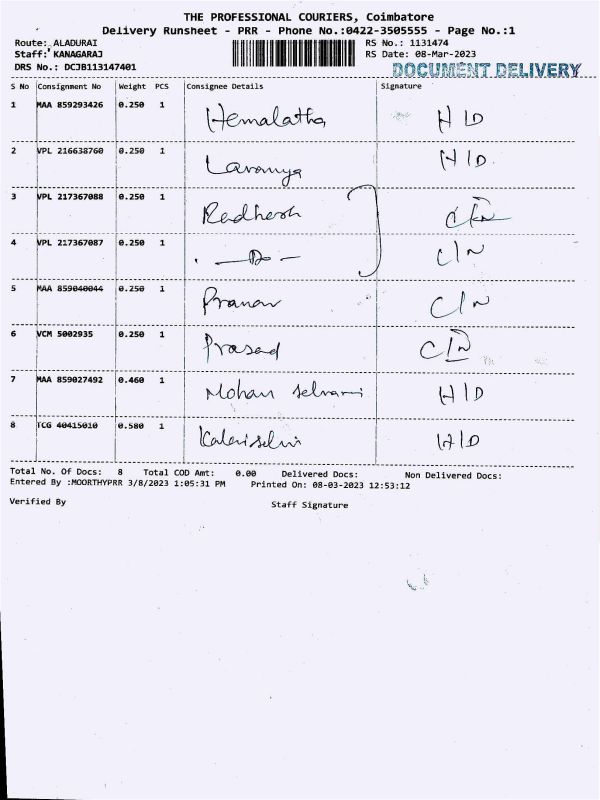 THE PROFESSIONAL COURIERS, Coimbatore
Delivery Runsheet - PRR - Phone No.:0422-3505555 - Page No.:1
Route: ALADURAI RS No.: 1131474
Staff: KANAGARAJ RS Date: 08-Mar-2023
DRS No.: DCJB113147401 DOCUMENT DELIVERY
S No Consignment No Weight PCS Consignee Details Signature
1 MAA 859293426 0.250 1 Hemalatha H/D
2 VPL 216638760 0.250 1 Lavanya H/D
3 VPL 217367088 0.250 1 Radhesh C/N
4 VPL 217367087 0.250 1 -Do- C/N
5 MAA 859040044 0.250 1 Pranav C/N
6 VCM 5002935 0.250 1 Prasad C/N
7 MAA 859027492 0.460 1 Mohan Selvarani H/D
8 TCG 40415010 0.580 1 Kalaiselvi H/D
Total No. Of Docs: 8 Total COD Amt: 0.00 Delivered Docs: Non Delivered Docs:
Entered By :MOORTHYPRR 3/8/2023 1:05:31 PM Printed On: 08-03-2023 12:53:12
Verified By Staff Signature